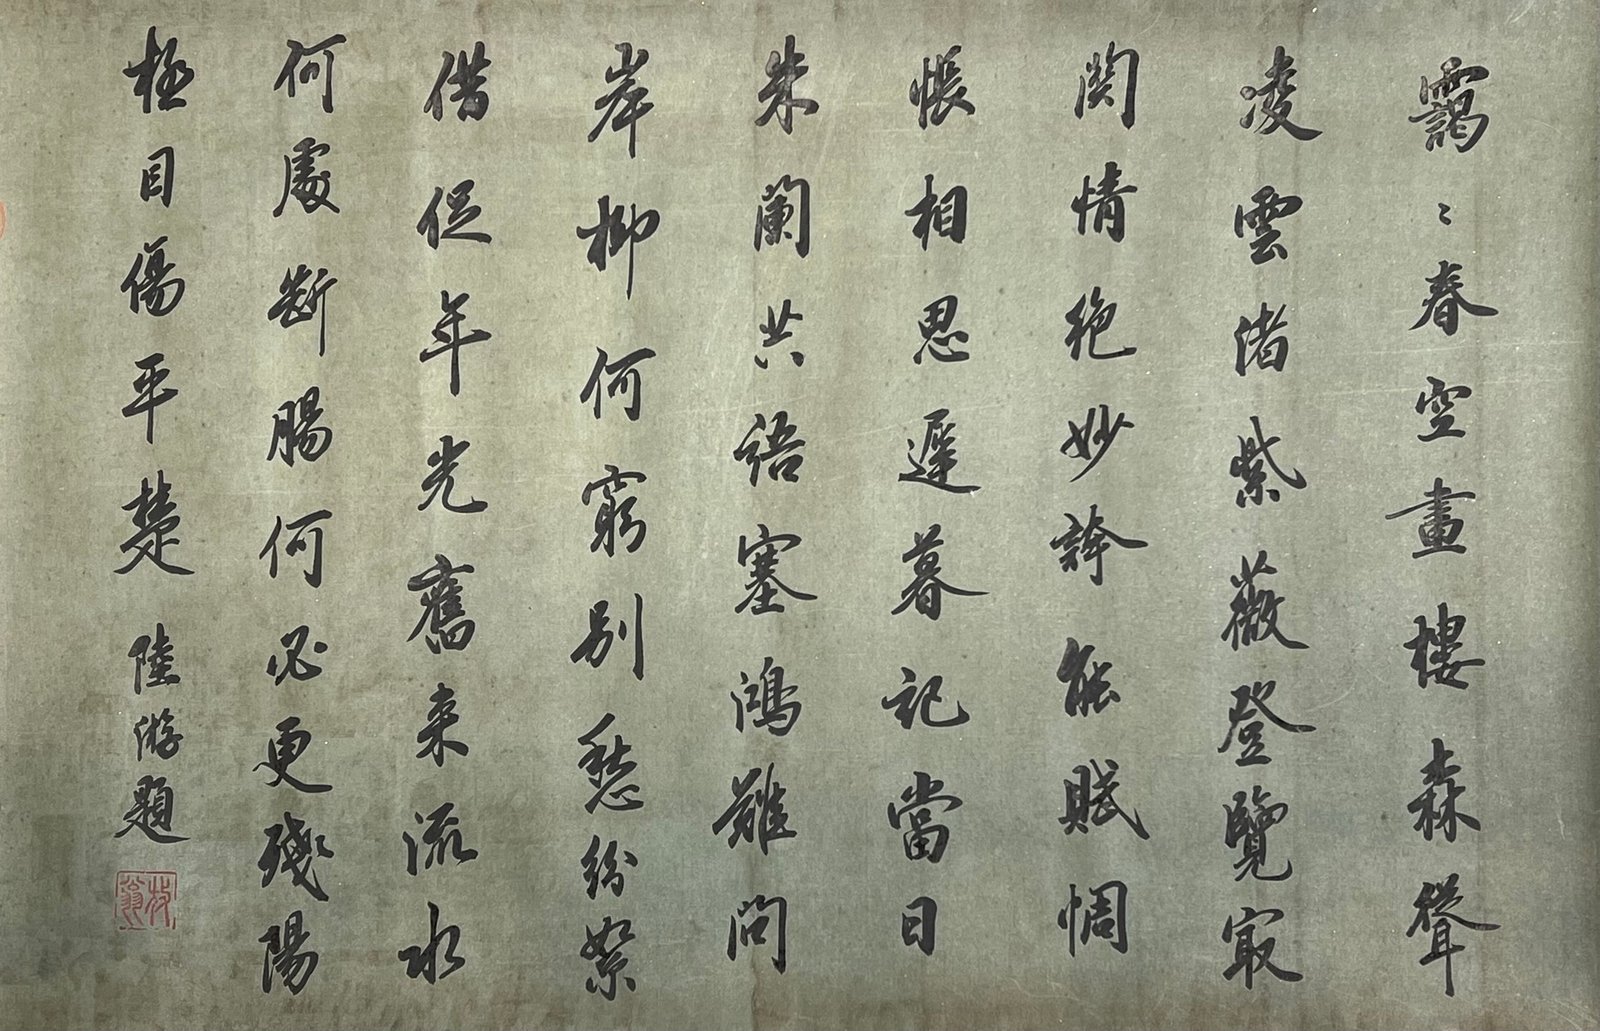 靄〻春空畫樓森聳
凌雲渚紫薇登覽冣
関情絶妙誇能賦惆
悵相思遲暮記當日
朱闌共語塞鴻難問
岸柳何窮別愁紛絮
借促年光舊来流水
何處断腸何必更殘陽
極目傷平楚 陸游題
放翁